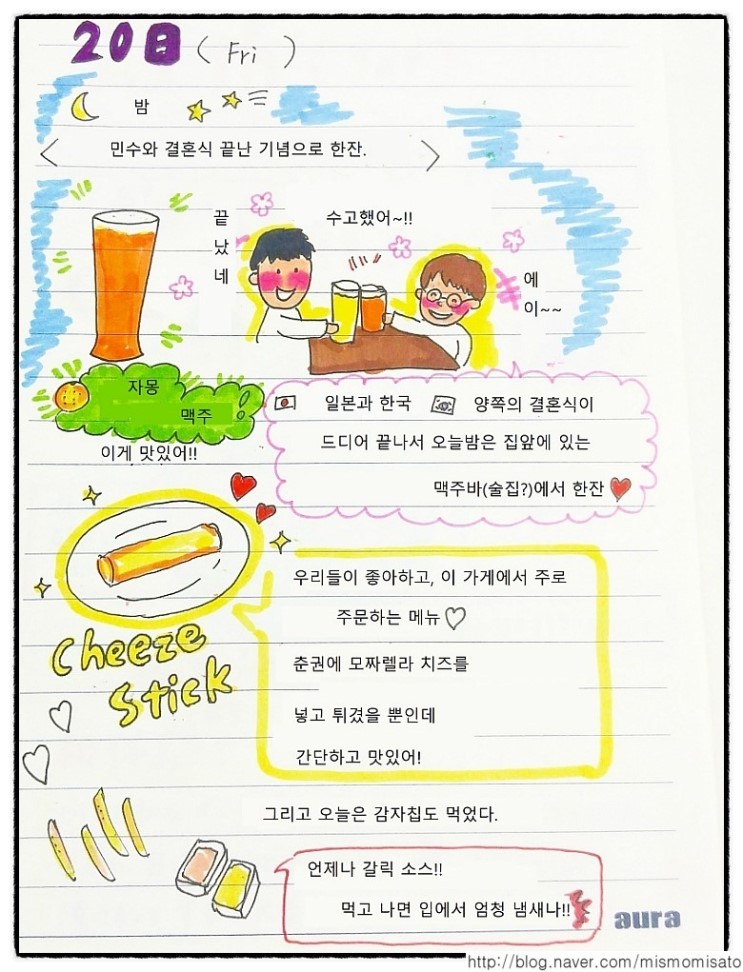 20日 (Fri)
밤
민수와 결혼식 끝난 기념으로 한잔.
끝
났
네
수고했어~!!
에
이~~
자몽
맥주
이게 맛있어!!
일본과 한국 양쪽의 결혼식이
드디어 끝나서 오늘밤은 집앞에 있는
맥주바(술집?)에서 한잔
우리들이 좋아하고, 이 가게에서 주로
주문하는 메뉴♡
춘권에 모짜렐라 치즈를
넣고 튀겼을 뿐인데
간단하고 맛있어!
Cheeze
Stick
그리고 오늘은 감자칩도 먹었다.
언제나 갈릭 소스!!
먹고 나면 입에서 엄청 냄새나!!
aura
http://blog.naver.com/mismomisato